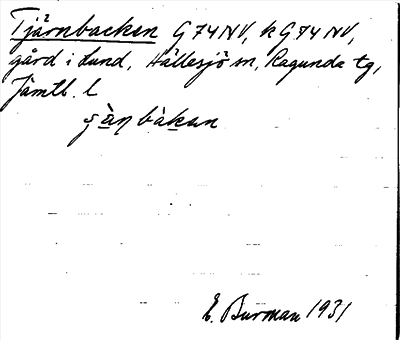 Tjärnbacken G 74 NV, k G 74 NV,
gård i Lund, Hällesjö sn, Ragunda tg,
Jämtl. l
E. Burman 1931